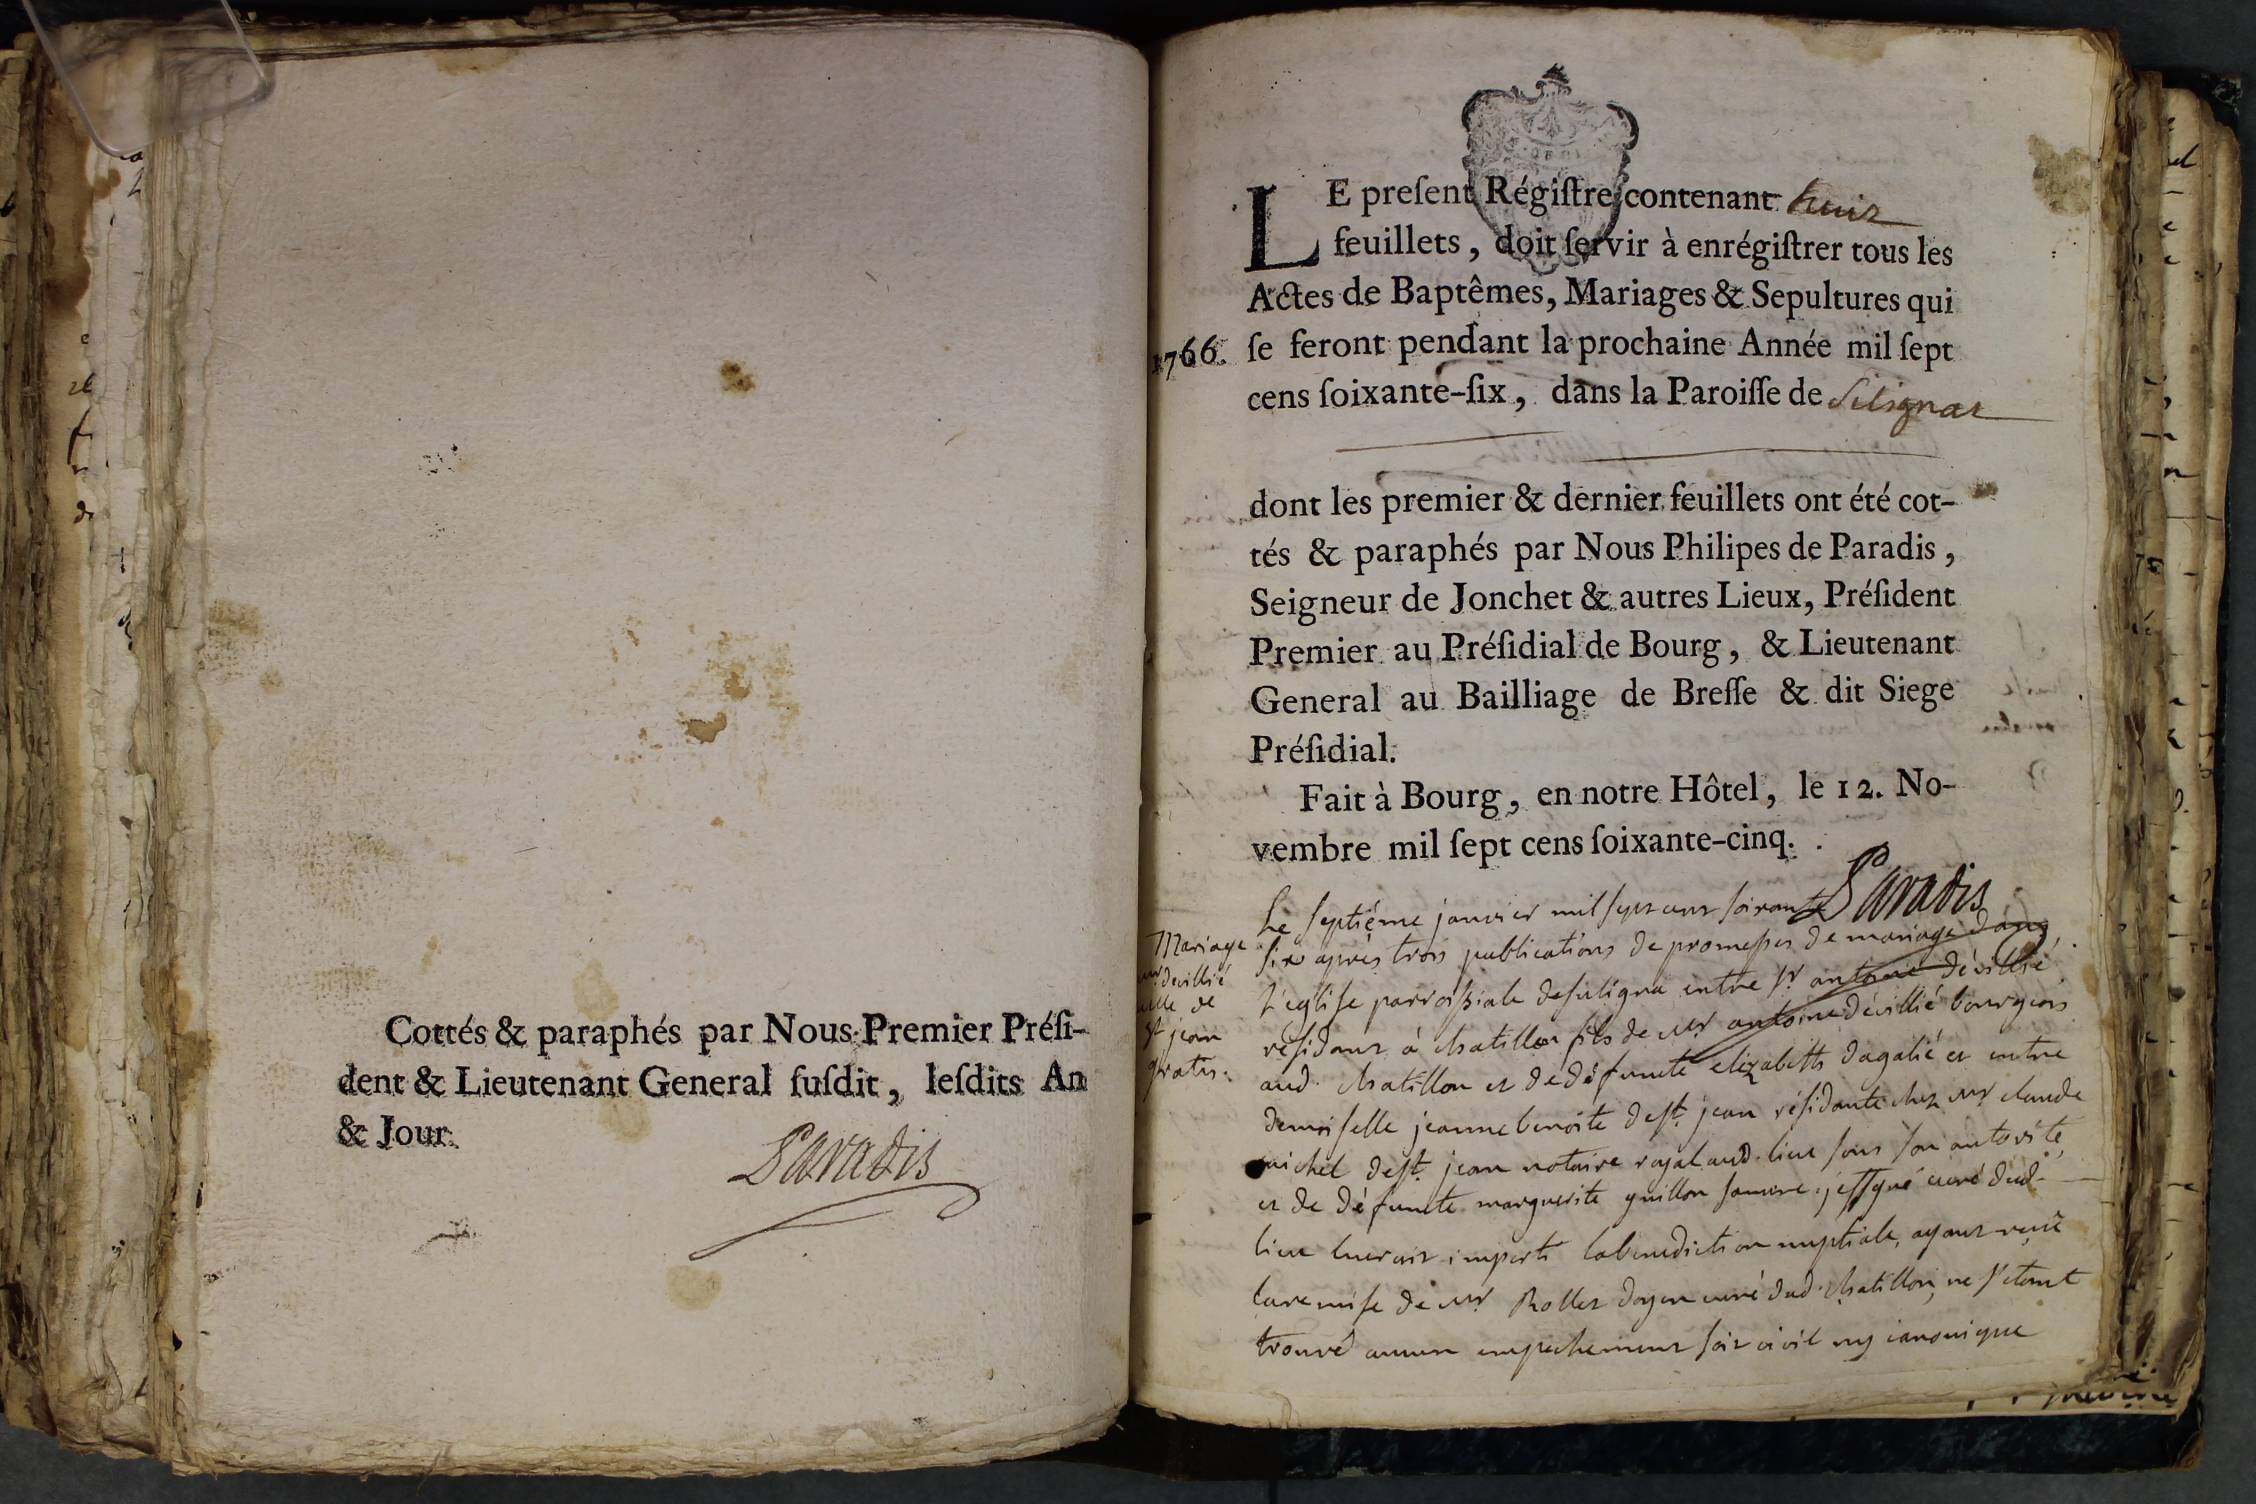 Cottés & paraphés par Nous Premier Préſi-
dent & Lieutenant General ſuſdit, leſdits An
& Jour.
Paradis
LE preſent Régiſtre contenant huit
feuillets, doit ſervir à enrégiſtrer tous les
Actes de Baptêmes, Mariages & Sepultures qui
1766. ſe feront pendant la prochaine Année mil ſept
cens ſoixante-ſix, dans la Paroiſſe de Silignat
dont les premier & dernier feuillets ont été cot-
tés & paraphés par Nous Philipes de Paradis,
Seigneur de Jonchet & autres Lieux, Préſident
Premier au Préſidial de Bourg, & Lieutenant
General au Bailliage de Breſſe & dit Siege
Préſidial.
Fait à Bourg, en notre Hôtel, le 12. No-
vembre mil ſept cens ſoixante-cinq.
Paradis
Mariage
devillié
de
st jean
gratis.
Le septiéme janvier mil sept cent soixante
six après trois publications de promesses de mariage dans
l'eglise parroissiale de suligna entre sr antoine dévillié
résidant à chatillon fils de mr antoine dévillié bourgeois
aud. chatillon et de défuncte elizabeth dagalié et entre
demoiselle jeanne benoite de st. jean résidante chez mr claude
michel de st. jean notaire royal aud. lieu sous son autorité
et de défuncte marguerite guillon sa mere. je ssgné curé dud.
lieu leur ait imparti la benediction nuptiale, ayant reçue
la remise de mr Rollet doyen curé dud. chatillon, ne s'etant
trouvé aucun empechement soit civil ny canonique